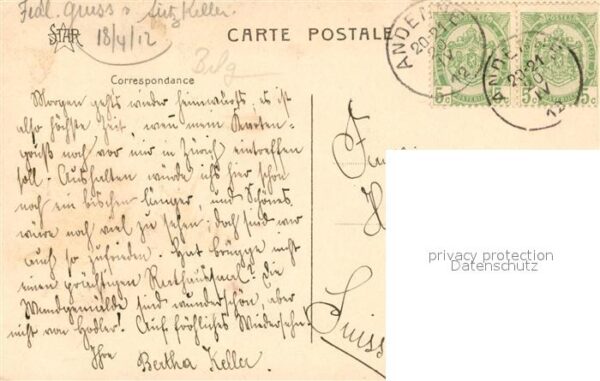 Frdl. Gruss v. Fritz Keller.
18/4/12
STAR
CARTE POSTALE
Belg
Correspondance
Morgen geht's wieder heimwärts, es ist
also höchste Zeit, wenn mein Karten-
gruß noch vor mir in Zürich eintreffen
soll. Aushalten würde ich's hier schon
noch ein bischen länger, und Schönes
wäre noch viel zu sehen; doch sind wir
auch so zufrieden. Hat Brügge nicht
einen prächtigen Rathaussaal? Die
Wandgemälde sind wunderschön, aber
nicht von Hodler! Auf fröhliches Wiedersehn!
Ihre Bertha Keller.
ANDE
20-21
IV
12
5c 5c
ANDE
20-21
IV
12
5c 5c
Suisse
privacy protection
Datenschutz